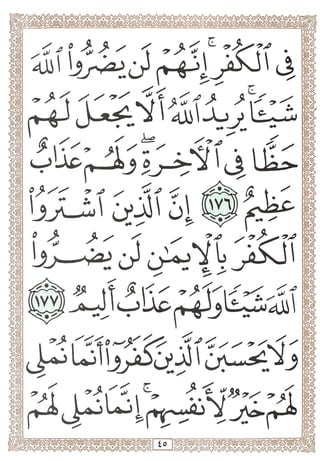 فِى ٱلۡكُفۡرِۚ إِنَّهُمۡ لَن يَضُرُّواْ ٱللَّهَ
شَيۡـًٔاۚ يُرِيدُ ٱللَّهُ أَلَّا يَجۡعَلَ لَهُمۡ
حَظًّا فِى ٱلۡأٓخِرَةِۖ وَلَهُمۡ عَذَابٌ
عَظِيمٌ ١٧٦ إِنَّ ٱلَّذِينَ ٱشۡتَرَوُاْ
ٱلۡكُفۡرَ بِٱلۡإِيمَٰنِ لَن يَضُرُّواْ
ٱللَّهَ شَيۡـًٔا وَلَهُمۡ عَذَابٌ أَلِيمٌ ١٧٧
وَلَا يَحۡسَبَنَّ ٱلَّذِينَ كَفَرُوٓاْ أَنَّمَا نُمۡلِى
لَهُمۡ خَيۡرٌ لِّأَنفُسِهِمۡۚ إِنَّمَا نُمۡلِى لَهُمۡ
٤٥